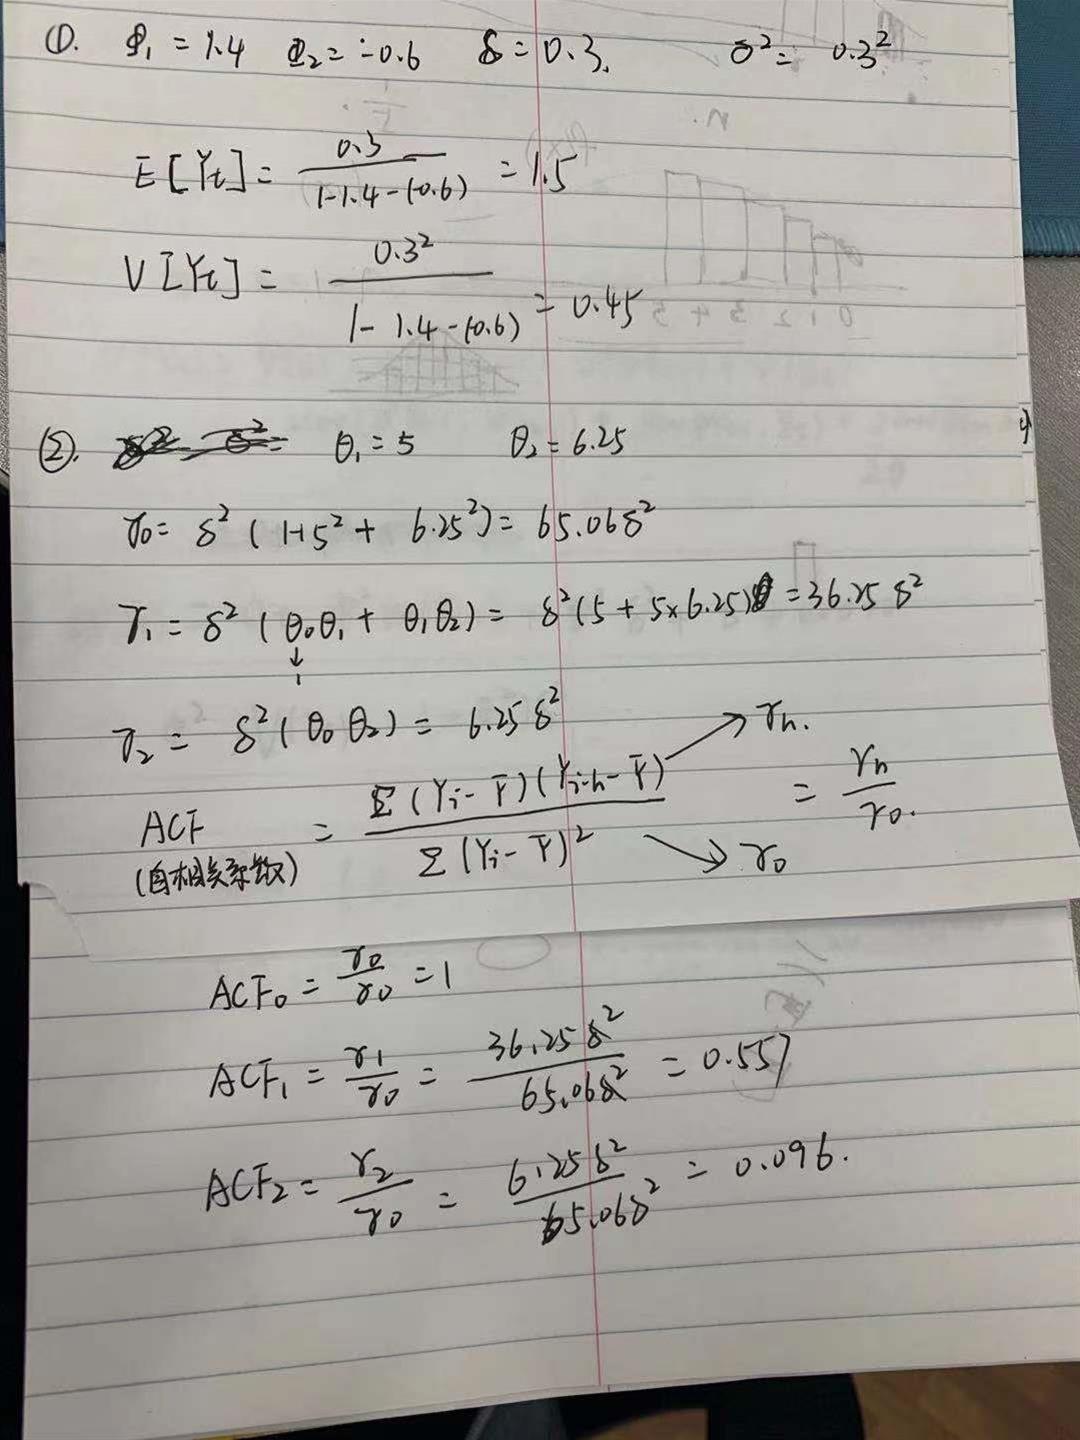 ①. Φ₁ = 1.4 Φ₂ = -0.6 δ = 0.3. σ² = 0.3²
E[Yt] = 0.3 / (1-1.4-(-0.6)) = 1.5
V[Yt] = 0.3² / (1-1.4-(-0.6)) = 0.45
②. θ₁ = 5 θ₂ = 6.25
γ₀ = δ² (1+5² + 6.25²) = 65.06δ²
γ₁ = δ² (θ₀θ₁ + θ₁θ₂) = δ²(5 + 5×6.25) = 36.25 δ²
↓
1
γ₂ = δ²(θ₀ θ₂) = 6.25 δ²
ACF = Σ(Yi - Ȳ)(Yi-h - Ȳ) / Σ(Yi - Ȳ)² → γh. → γ₀ = γh / γ₀.
(自相关系数)
ACF₀ = γ₀ / γ₀ = 1
ACF₁ = γ₁ / γ₀ = 36.25 δ² / 65.06δ² = 0.557
ACF₂ = γ₂ / γ₀ = 6.25δ² / 65.06δ² = 0.096.